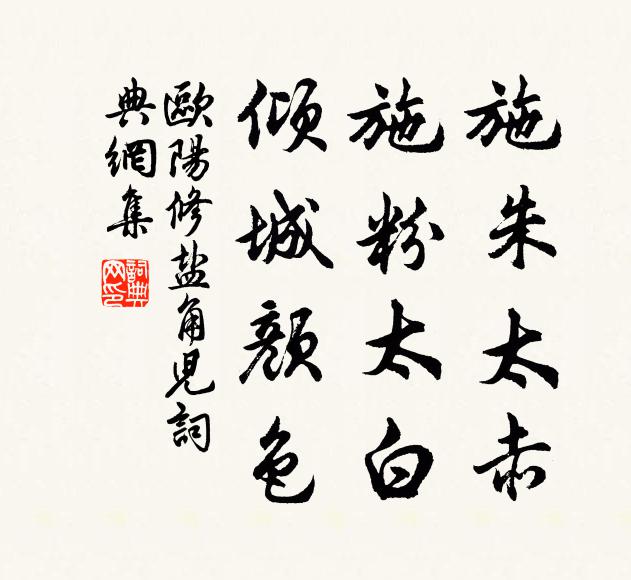 施朱太赤
施粉太白
傾城顏色
歐陽修盐角児詞
典網集
詞典網印